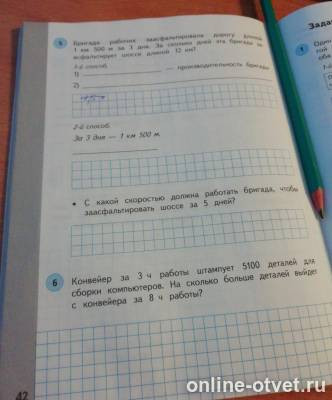 5 Бригада рабочих заасфальтировала дорогу длиной
1 км 500 м за 3 дня. За сколько дней эта бригада за-
асфальтирует шоссе длиной 12 км?
1-й способ.
1) — производительность бригады
2)
2-й способ.
За 3 дня — 1 км 500 м.
• С какой скоростью должна работать бригада, чтобы
заасфальтировать шоссе за 5 дней?
6 Конвейер за 3 ч работы штампует 5100 деталей для
сборки компьютеров. На сколько больше деталей выйдет
с конвейера за 8 ч работы?
42
Задач
1 Один
той
оба
1-й
online-otvet.ru